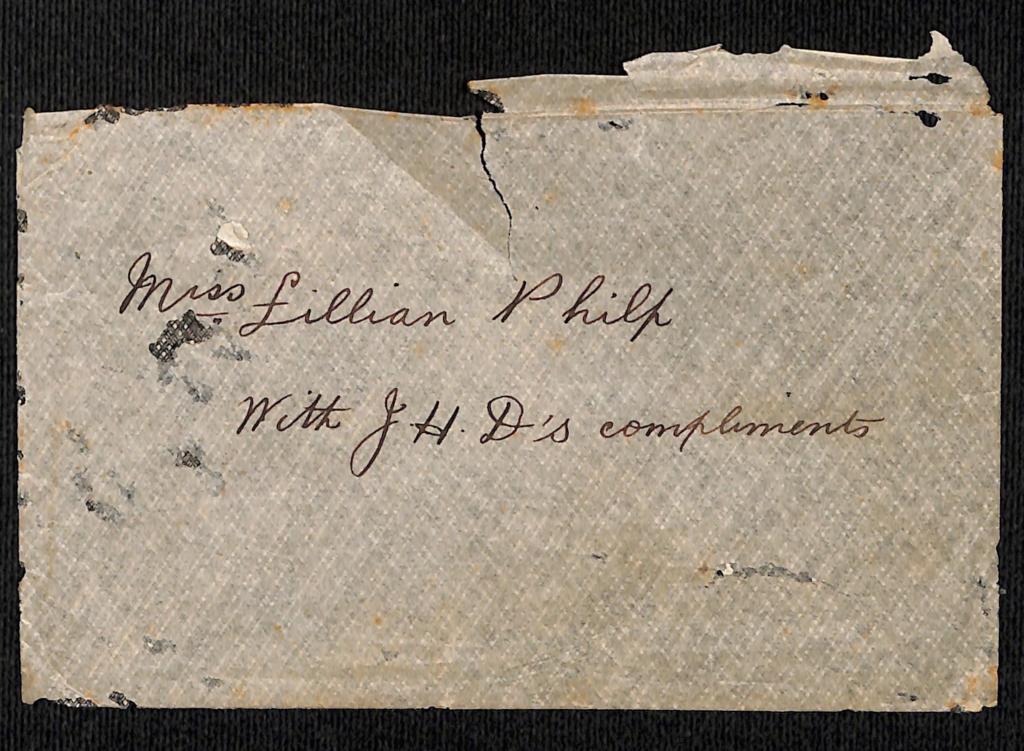 Miss Lillian Philp
With J H. D's compliments